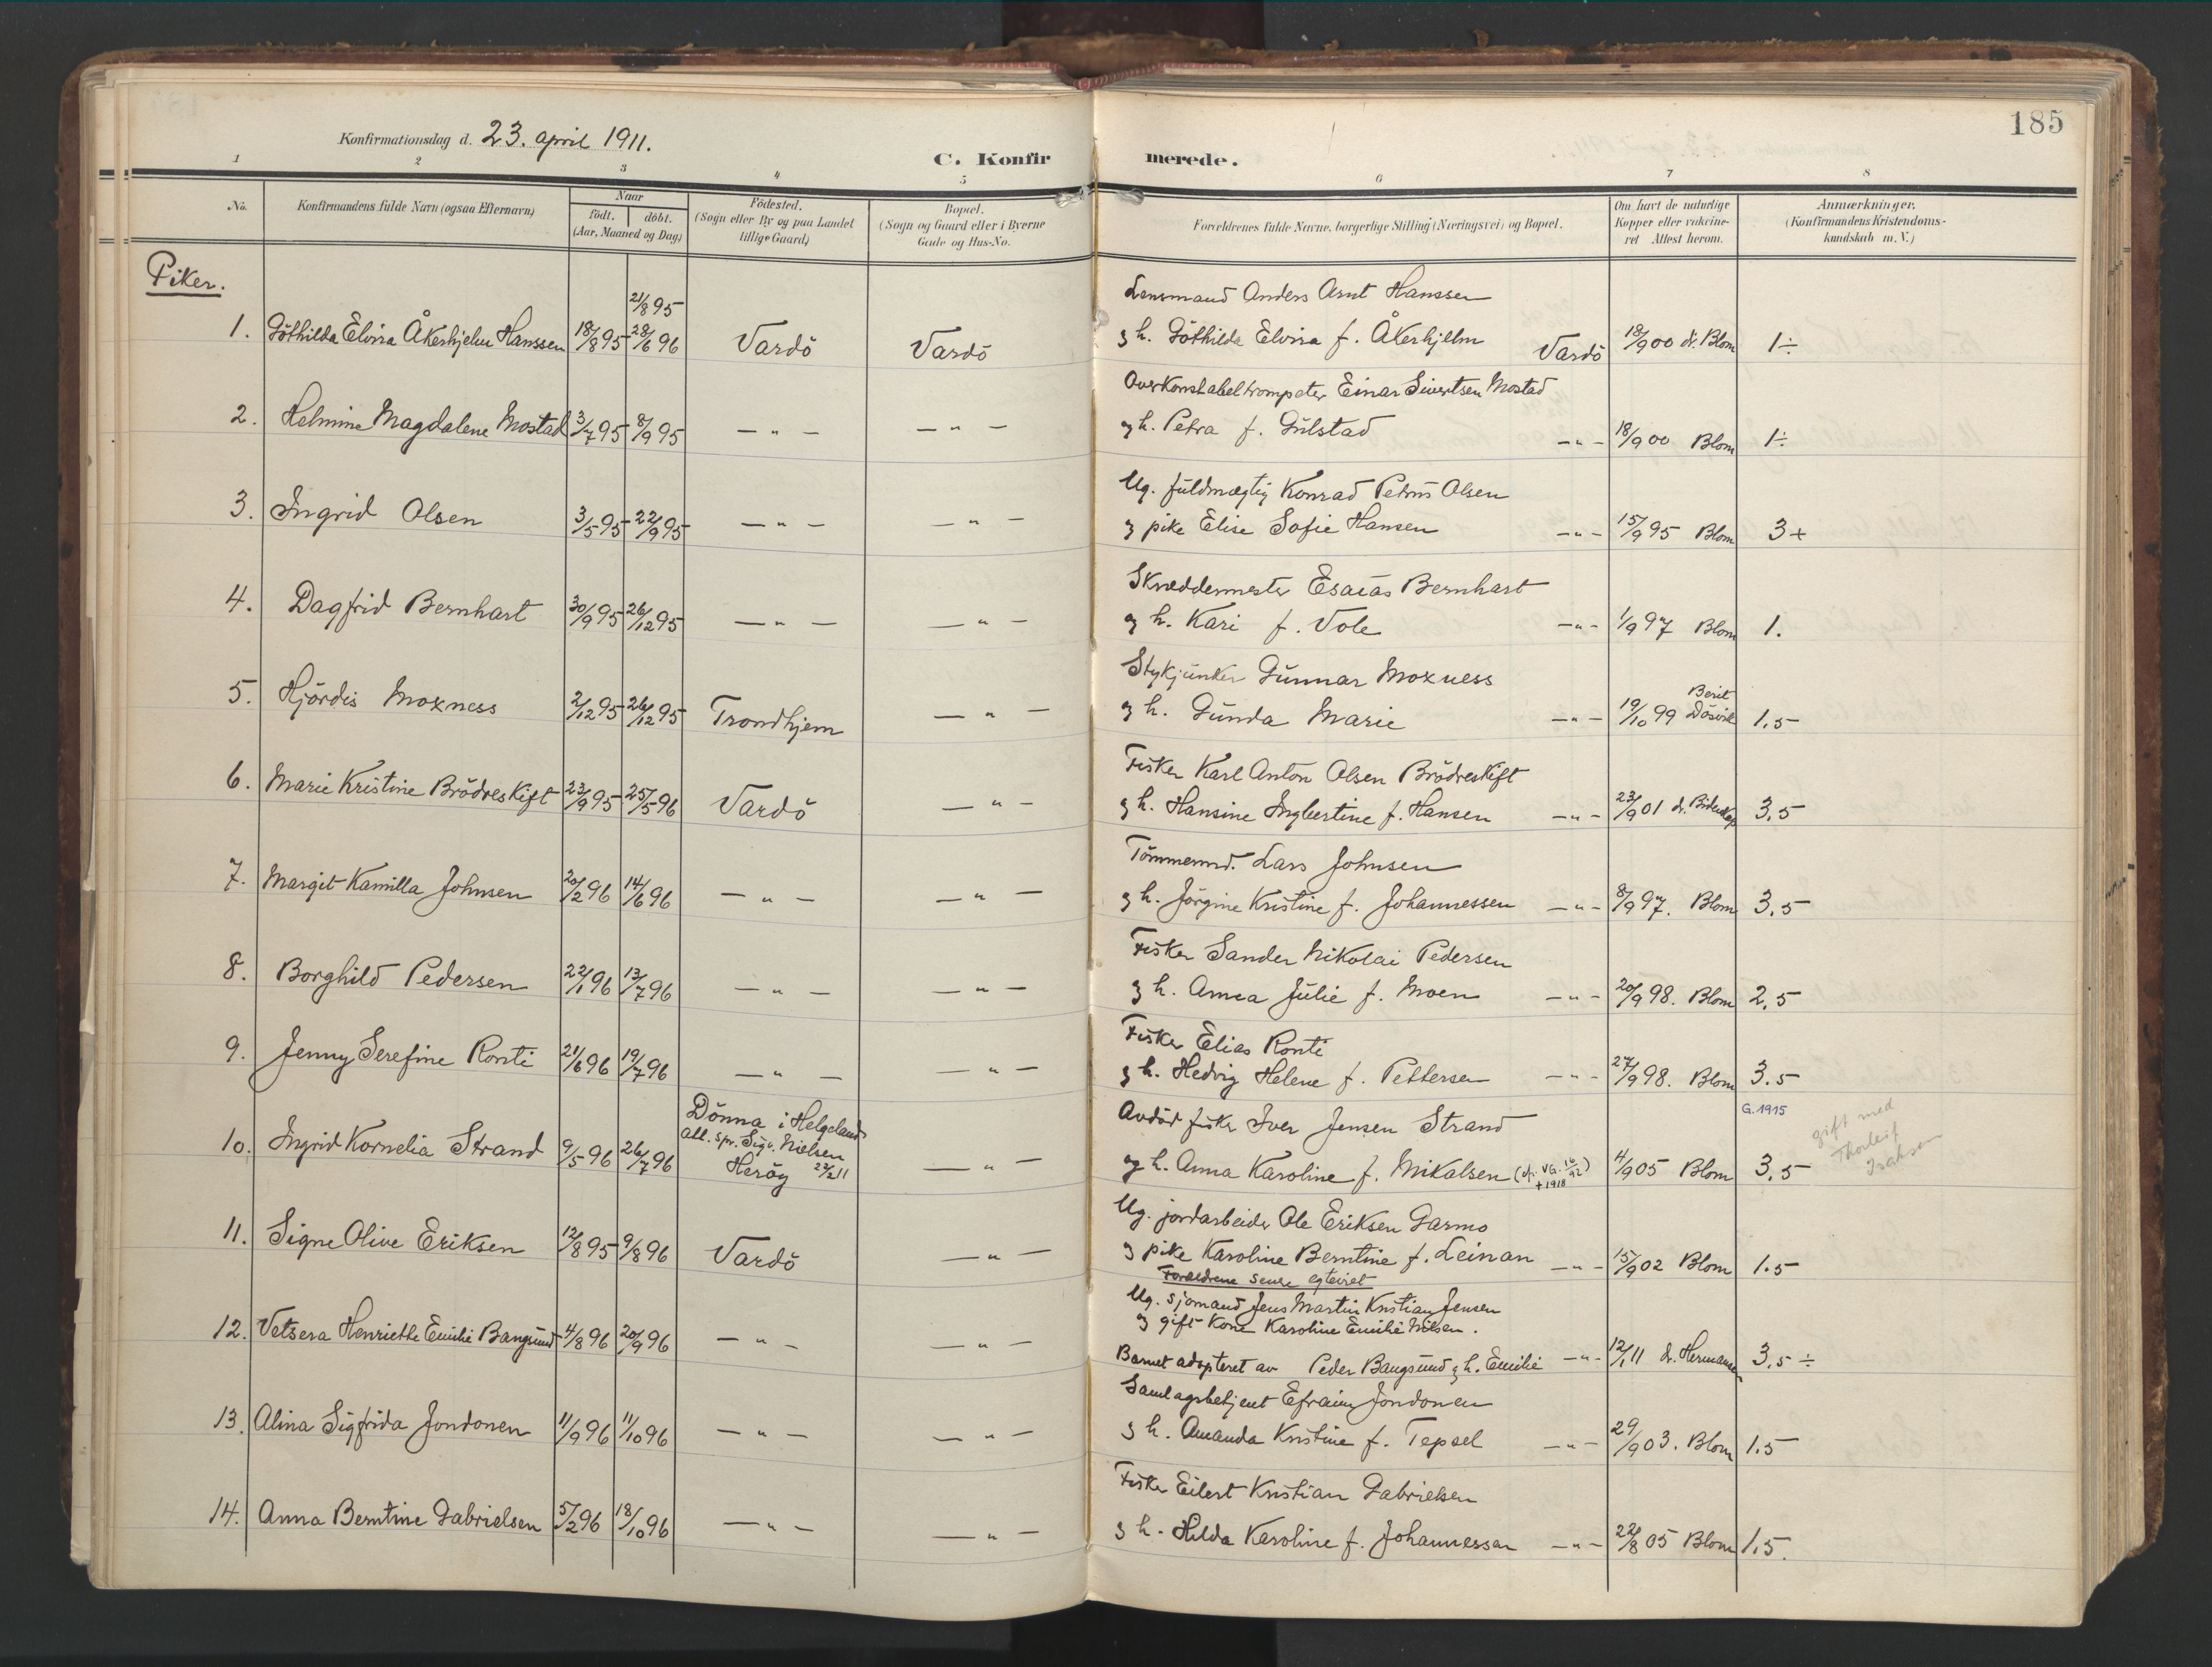 185
Konfirmationsdag d. 23. april 1911.
C. Konfir merede.
1 2 3 4 5 6 7 8
No.
Konfirmandens fulde Navn (ogsaa Efternavn)
Naar
födt. döbt.
(Aar, Maaned og Dag)
Födested.
(Sogn eller By og paa Landet
tillige Gaard)
Bopæl.
(Sogn og Gaard eller i Byerne
Gade og Hus-No.
Forældrenes fulde Navne, borgerlige Stilling (Næringsvei) og Bopæl.
Om havt de naturlige
Kopper eller vakcine-
ret Attest herom.
Anmærkninger.
(Konfirmandens Kristendoms-
kundskab m. V.)
Piker.
21/8 95
Lensmand Anders Arnt Hanssen
1. Göthilda Elvira Åkerhjelm Hanssen 18/8 95 28/6 96 Vardö Vardö g h. Göthilda Elvira f. Åkerhjelm Vardö 18/9 00 dr. Blom 1÷
Overkonstabeltrompeter Einar Sivertsen Mostad
2. Helmine Magdalene Mostad 3/7 95 8/9 95 — " — — " — g h. Petra f. Gülstad — " — 18/9 00 Blom 1÷
Ug. fuldmægtig Konrad Petrus Olsen
3. Ingrid Olsen 3/5 95 22/9 95 — " — — " — g pike Elise Sofie Hansen — " — 15/9 95 Blom 3+
Skreddermester Esaias Bernhart
4. Dagfrid Bernhart 30/9 95 26/12 95 — " — — " — g h. Kari f. Vole — " — 1/9 97 Blom 1.
Stykjunker Gunnar Moxness
5. Hjördis Moxness 2/12 95 26/12 95 Trondhjem — " — g h. Gunda Marie — " — 19/10 99 Berit 1,5
Fisker Karl Anton Olsen Brödreskift
6. Marie Kristine Brödreskift 23/9 95 25/5 96 Vardö — " — g h. Hansine Ingbertine f. Hansen — " — 23/9 01 dr. 3,5
Tömmermd. Lars Johnsen
7. Margit Kamilla Johnsen 20/2 96 14/6 96 — " — — " — g h. Jörgine Kristine f. Johannessen — " — 8/9 97. Blom 3,5
Fisker Sander Nikolai Pedersen
8. Borghild Pedersen 22/1 96 13/7 96 — " — — " — g h. Anna Julie f. Moen — " — 20/9 98. Blom 2,5
Fisker Elias Ronti
9. Jenny Serefine Ronti 21/6 96 19/7 96 — " — — " — g h. Hedvig Helene f. Pettersen — " — 27/9 98. Blom 3.5
Dönna i Helgeland Avdöd fisker Iver Jensen Strand G. 1915
att. spr. Sigv. Nielsen gift med
10. Ingrid Kornelia Strand 9/5 96 26/7 96 Heröy 22/2 11 — " — og h. Anna Karoline f. Mikalsen (dp. VG. 16/92) 4/9 05 Blom 3,5 Thorleif
+1918 Isaksen
Ug. jordarbeider Ole Eriksen Garmo
11. Signe Olive Eriksen 12/8 95 9/8 96 Vardö — " — g pike Karoline Berntine f. Leinan — " — 15/9 02 Blom 1.5
Forældrene senere egteviet
Ug. sjömand Jens Martin Kristian Jensen
g gift kone Karoline Emilie Nilsen.
12. Vetsera Henriette Emilie Bangsund 4/8 96 20/9 96 — " — — " — Barnet adopteret av Peder Bangsund g h. Emilie — " — 12/1 11 dr. Hermansen 3,5÷
Samlagsbetjent Efraim Jondonen
13. Alina Sigfrida Jondonen 11/9 96 11/10 96 — " — — " — g h. Amanda Kristine f. Tepsel — " — 29/9 03. Blom 1.5
Fisker Eilert Kristian Gabrielsen
14. Anna Berntine Gabrielsen 5/2 96 18/10 96 — " — — " — g h. Hilda Karoline f. Johannessen — " — 22/8 05 Blom 1,5.